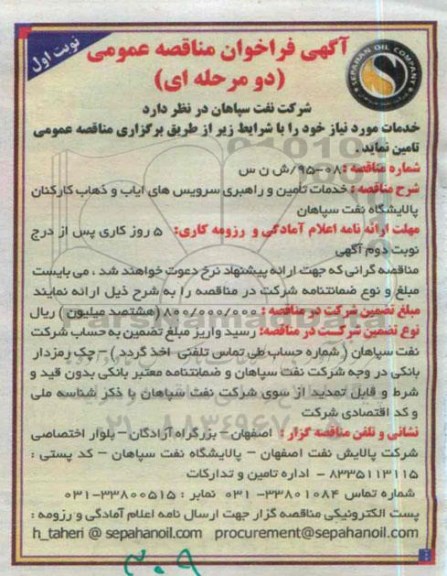 نوبت اول
آگهی فراخوان مناقصه عمومی
(دو مرحله ای)
SEPAHAN OIL COMPANY
شرکت نفت سپاهان در نظر دارد
خدمات مورد نیاز خود را با شرایط زیر از طریق برگزاری مناقصه عمومی
تامین نماید.
شماره مناقصه: ۰۸-۹۵/ش ن س
شرح مناقصه: خدمات تأمین و راهبری سرویس های ایاب و ذهاب کارکنان
پالایشگاه نفت سپاهان
مهلت ارائه نامه اعلام آمادگی و رزومه کاری: ۵ روز کاری پس از درج
نوبت دوم آگهی
مناقصه گرانی که جهت ارائه پیشنهاد نرخ دعوت خواهند شد، می بایست
مبلغ و نوع ضمانتنامه شرکت در مناقصه را به شرح ذیل ارائه نمایند
مبلغ تضمین شرکت در مناقصه: ۸۰۰/۰۰۰/۰۰۰ (هشتصد میلیون) ریال
نوع تضمین شرکت در مناقصه: رسید واریز مبلغ تضمین به حساب شرکت
نفت سپاهان (شماره حساب طی تماس تلفنی اخذ گردد) - چک رمزدار
بانکی در وجه شرکت نفت سپاهان و ضمانتنامه معتبر بانکی بدون قید و
شرط و قابل تمدید از سوی شرکت نفت سپاهان با ذکر شناسه ملی
و کد اقتصادی شرکت
نشانی و تلفن مناقصه گزار: اصفهان - بزرگراه آزادگان - بلوار اختصاصی
شرکت پالایش نفت اصفهان - پالایشگاه نفت سپاهان - کد پستی:
۸۳۳۵۱۱۳۱۱۵ - اداره تامین و تدارکات
شماره تماس ۳۳۸۰۱۰۸۴-۰۳۱ نمابر: ۳۳۸۰۰۵۱۵-۰۳۱
پست الکترونیکی مناقصه گزار جهت ارسال نامه اعلام آمادگی و رزومه:
h_taheri @ sepahanoil.com procurement@sepahanoil.com
۳۰۹